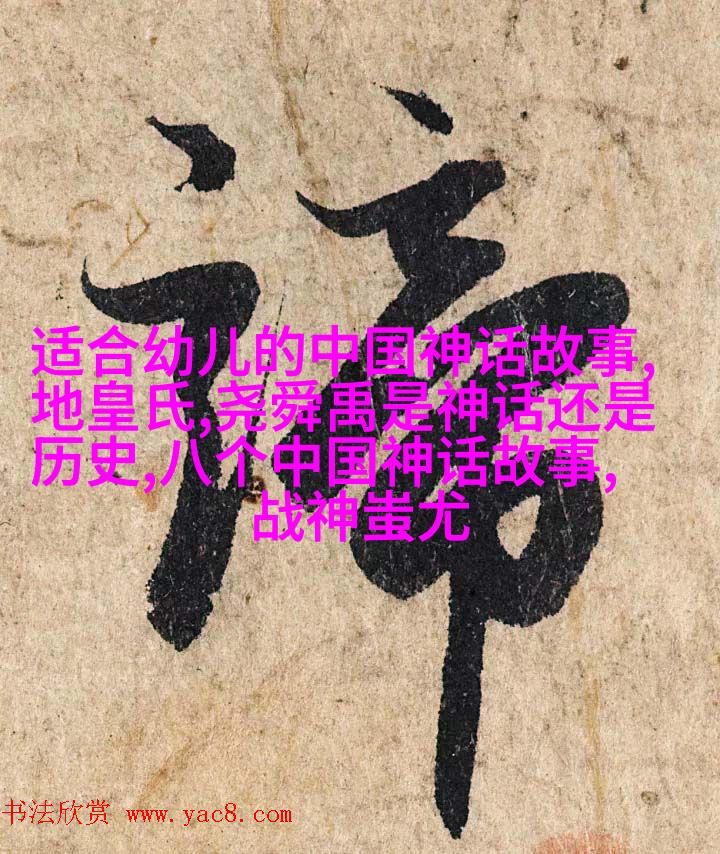 谛
适合幼儿的中国神话故事,
地皇氏,尧舜禹是神话还是
历史,八个中国神话故事,
战神蚩尤
书法欣赏 www.yac8.com